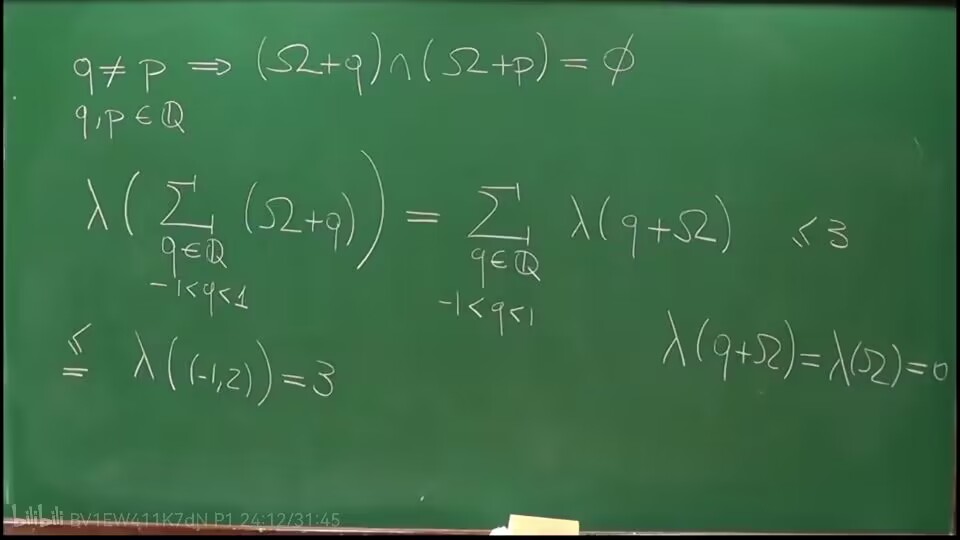 q ≠ p ⟹ (Ω+q)∩(Ω+p) = ∅
q,p ∈ ℚ
λ( Σ (Ω+q) ) = Σ λ(q+Ω) ≤ 3
q∈ℚ q∈ℚ
-1<q<1 -1<q<1
≤
= λ((-1,2)) = 3 λ(q+Ω) = λ(Ω) = 0
bilibili BV1EW411K7dN P1 24:12/31:45